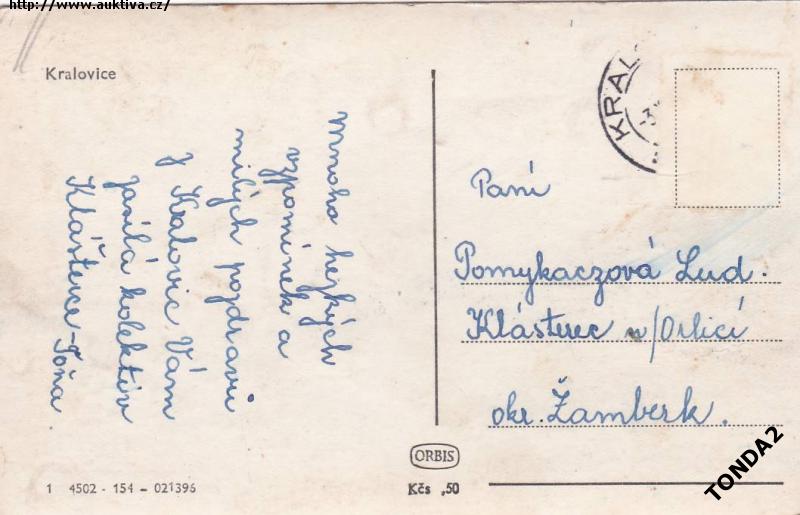 http://www.auktiva.cz/
Kralovice
Mnoho hezkých
vzpomínek a
milých pozdravů
z Kralovic Vám
zasílá kolektiv
Klášterce - Tóňa
KRAL
-3.
Paní
Pomykaczová Lud.
Klásterec n/Orlicí
okr. Žamberk.
ORBIS
1 4502 - 154 - 021396
Kčs ,50
TONDA2